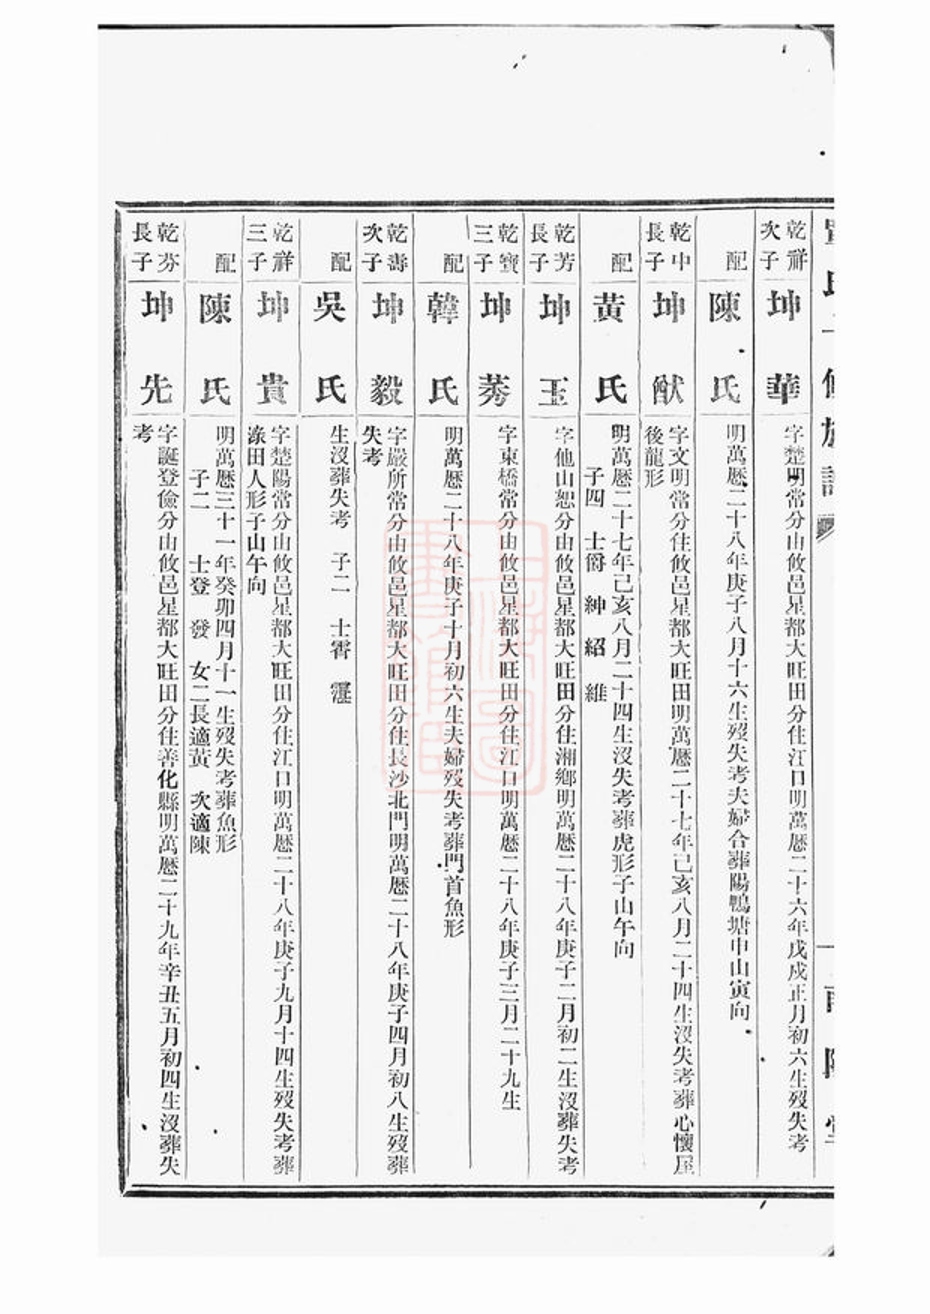 乾祥次子
坤華
字楚明常分由攸邑星都大旺田分住江口明萬曆二十六年戊戌正月初六生歿失考
配
陳氏
明萬曆二十八年庚子八月十六生歿失考夫婦合葬陽鴨塘申山寅向
乾中長子
坤猷
字文明常分住攸邑星都大旺田明萬曆二十七年己亥八月二十四生沒失考葬心懷屋
後龍形
配
黃氏
明萬曆二十七年己亥八月二十四生沒失考葬虎形子山午向
子四 士爵 紳 紹 維
乾芳長子
坤玉
字他山恕分由攸邑星都大旺田分住湘鄉明萬曆二十八年庚子二月初二生沒葬失考
乾寶三子
坤莠
字東橋常分由攸邑星都大旺田分住江口明萬曆二十八年庚子三月二十九生
配
韓氏
明萬曆二十八年庚子十月初六生夫婦歿失考葬門首魚形
乾壽次子
坤毅
字嚴所常分由攸邑星都大旺田分住長沙北門明萬曆二十八年庚子四月初八生歿葬
失考
配
吳氏
生沒葬失考 子二 士霄 霆
乾祥三子
坤貴
字楚陽常分由攸邑星都大旺田分住江口明萬曆二十八年庚子九月十四生歿失考葬
涤田人形子山午向
配
陳氏
明萬曆三十一年癸卯四月十一生歿失考葬魚形
子二 士登 發 女二長適黃 次適陳
乾芬長子
坤先
字誕登儉分由攸邑星都大旺田分住善化縣明萬曆二十九年辛丑五月初四生沒葬失
考